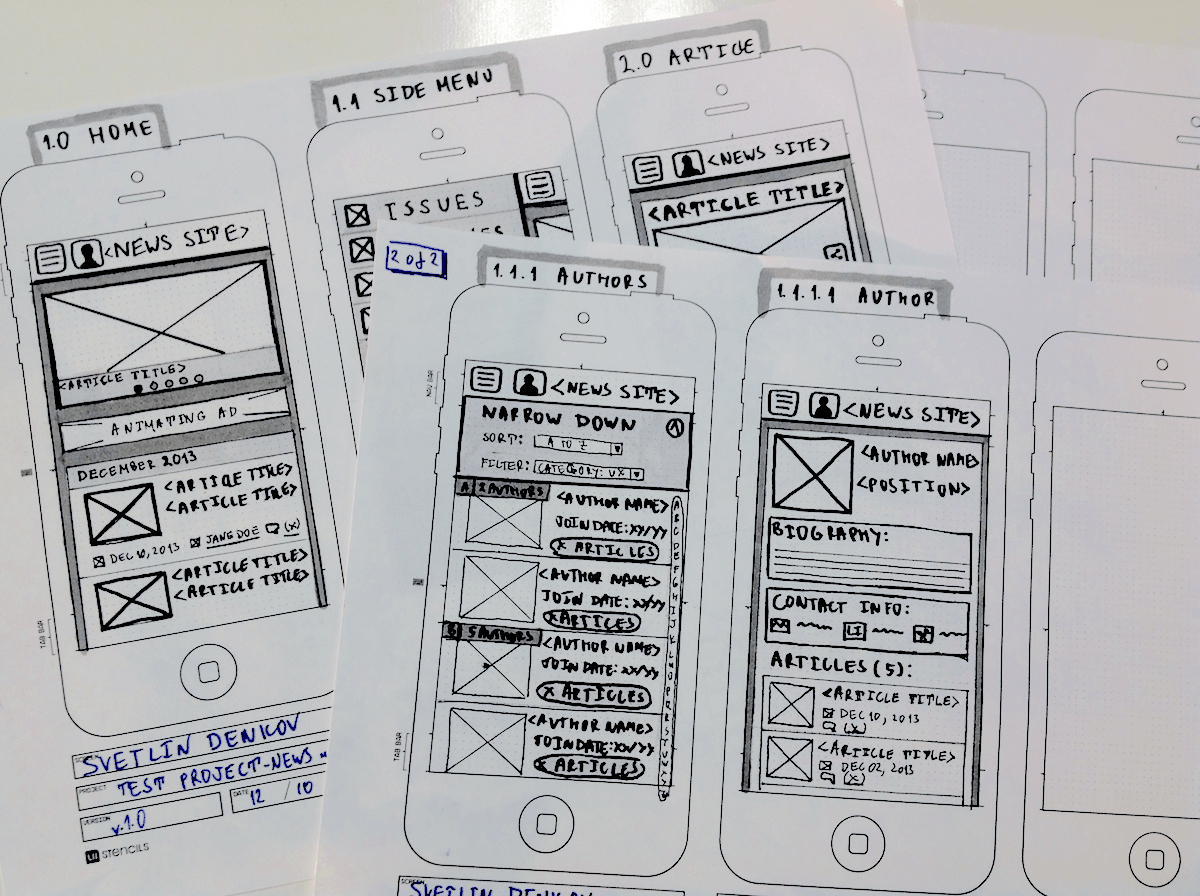 1.0 HOME
<NEWS SITE>
<ARTICLE TITLE>
ANIMATING AD
DECEMBER 2013
<ARTICLE TITLE>
<ARTICLE TITLE>
DEC 10, 2013 JANE DOE (X)
<ARTICLE TITLE>
<ARTICLE TITLE>
TAB BAR
SVETLIN DENKOV
PROJECT TEST PROJECT-NEWS
VERSION v.1.0
DATE 12 / 10
UI STENCILS
1.1 SIDE MENU
ISSUES
2.0 ARTICLE
<NEWS SITE>
<ARTICLE TITLE>
2 of 2
1.1.1 AUTHORS
NAV BAR
<NEWS SITE>
NARROW DOWN 1
SORT: A TO Z
FILTER: CATEGORY: UX
A 2 AUTHORS
<AUTHOR NAME>
JOIN DATE: XX/YY
X ARTICLES
<AUTHOR NAME>
JOIN DATE: XX/YY
X ARTICLES
B 5 AUTHORS
<AUTHOR NAME>
JOIN DATE: XX/YY
X ARTICLES
<AUTHOR NAME>
JOIN DATE: XX/YY
X ARTICLES
A
B
C
D
E
F
G
H
I
J
K
L
M
N
O
P
Q
R
S
T
U
V
TAB BAR
SCREEN
SVETLIN DENKOV
1.1.1.1 AUTHOR
<NEWS SITE>
<AUTHOR NAME>
<POSITION>
BIOGRAPHY:
CONTACT INFO:
LI
ARTICLES (5):
<ARTICLE TITLE>
DEC 10, 2013
(X)
<ARTICLE TITLE>
DEC 02, 2013
(X)